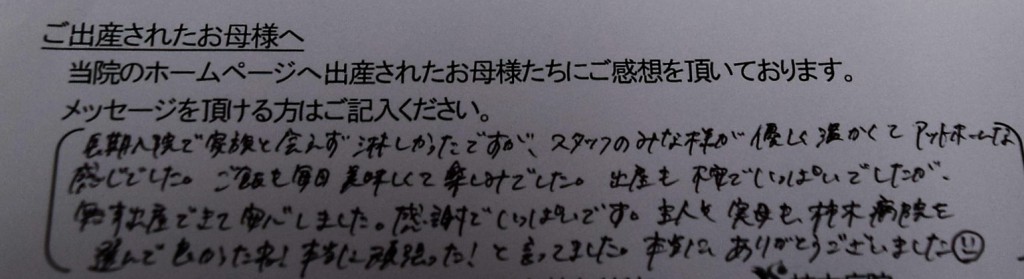 ご出産されたお母様へ
当院のホームページへ出産されたお母様たちにご感想を頂いております。
メッセージを頂ける方はご記入ください。
長期入院で家族と会えず淋しかったですが、スタッフのみな様が優しく温かくてアットホームな
感じでした。ご飯も毎日美味しくて楽しみでした。出産も不安でいっぱいでしたが、
無事出産できて安心しました。感謝でいっぱいです。主人も実母も柿木病院を
選んで良かったね!本当に頑張った!と言ってました。本当に、ありがとうございました